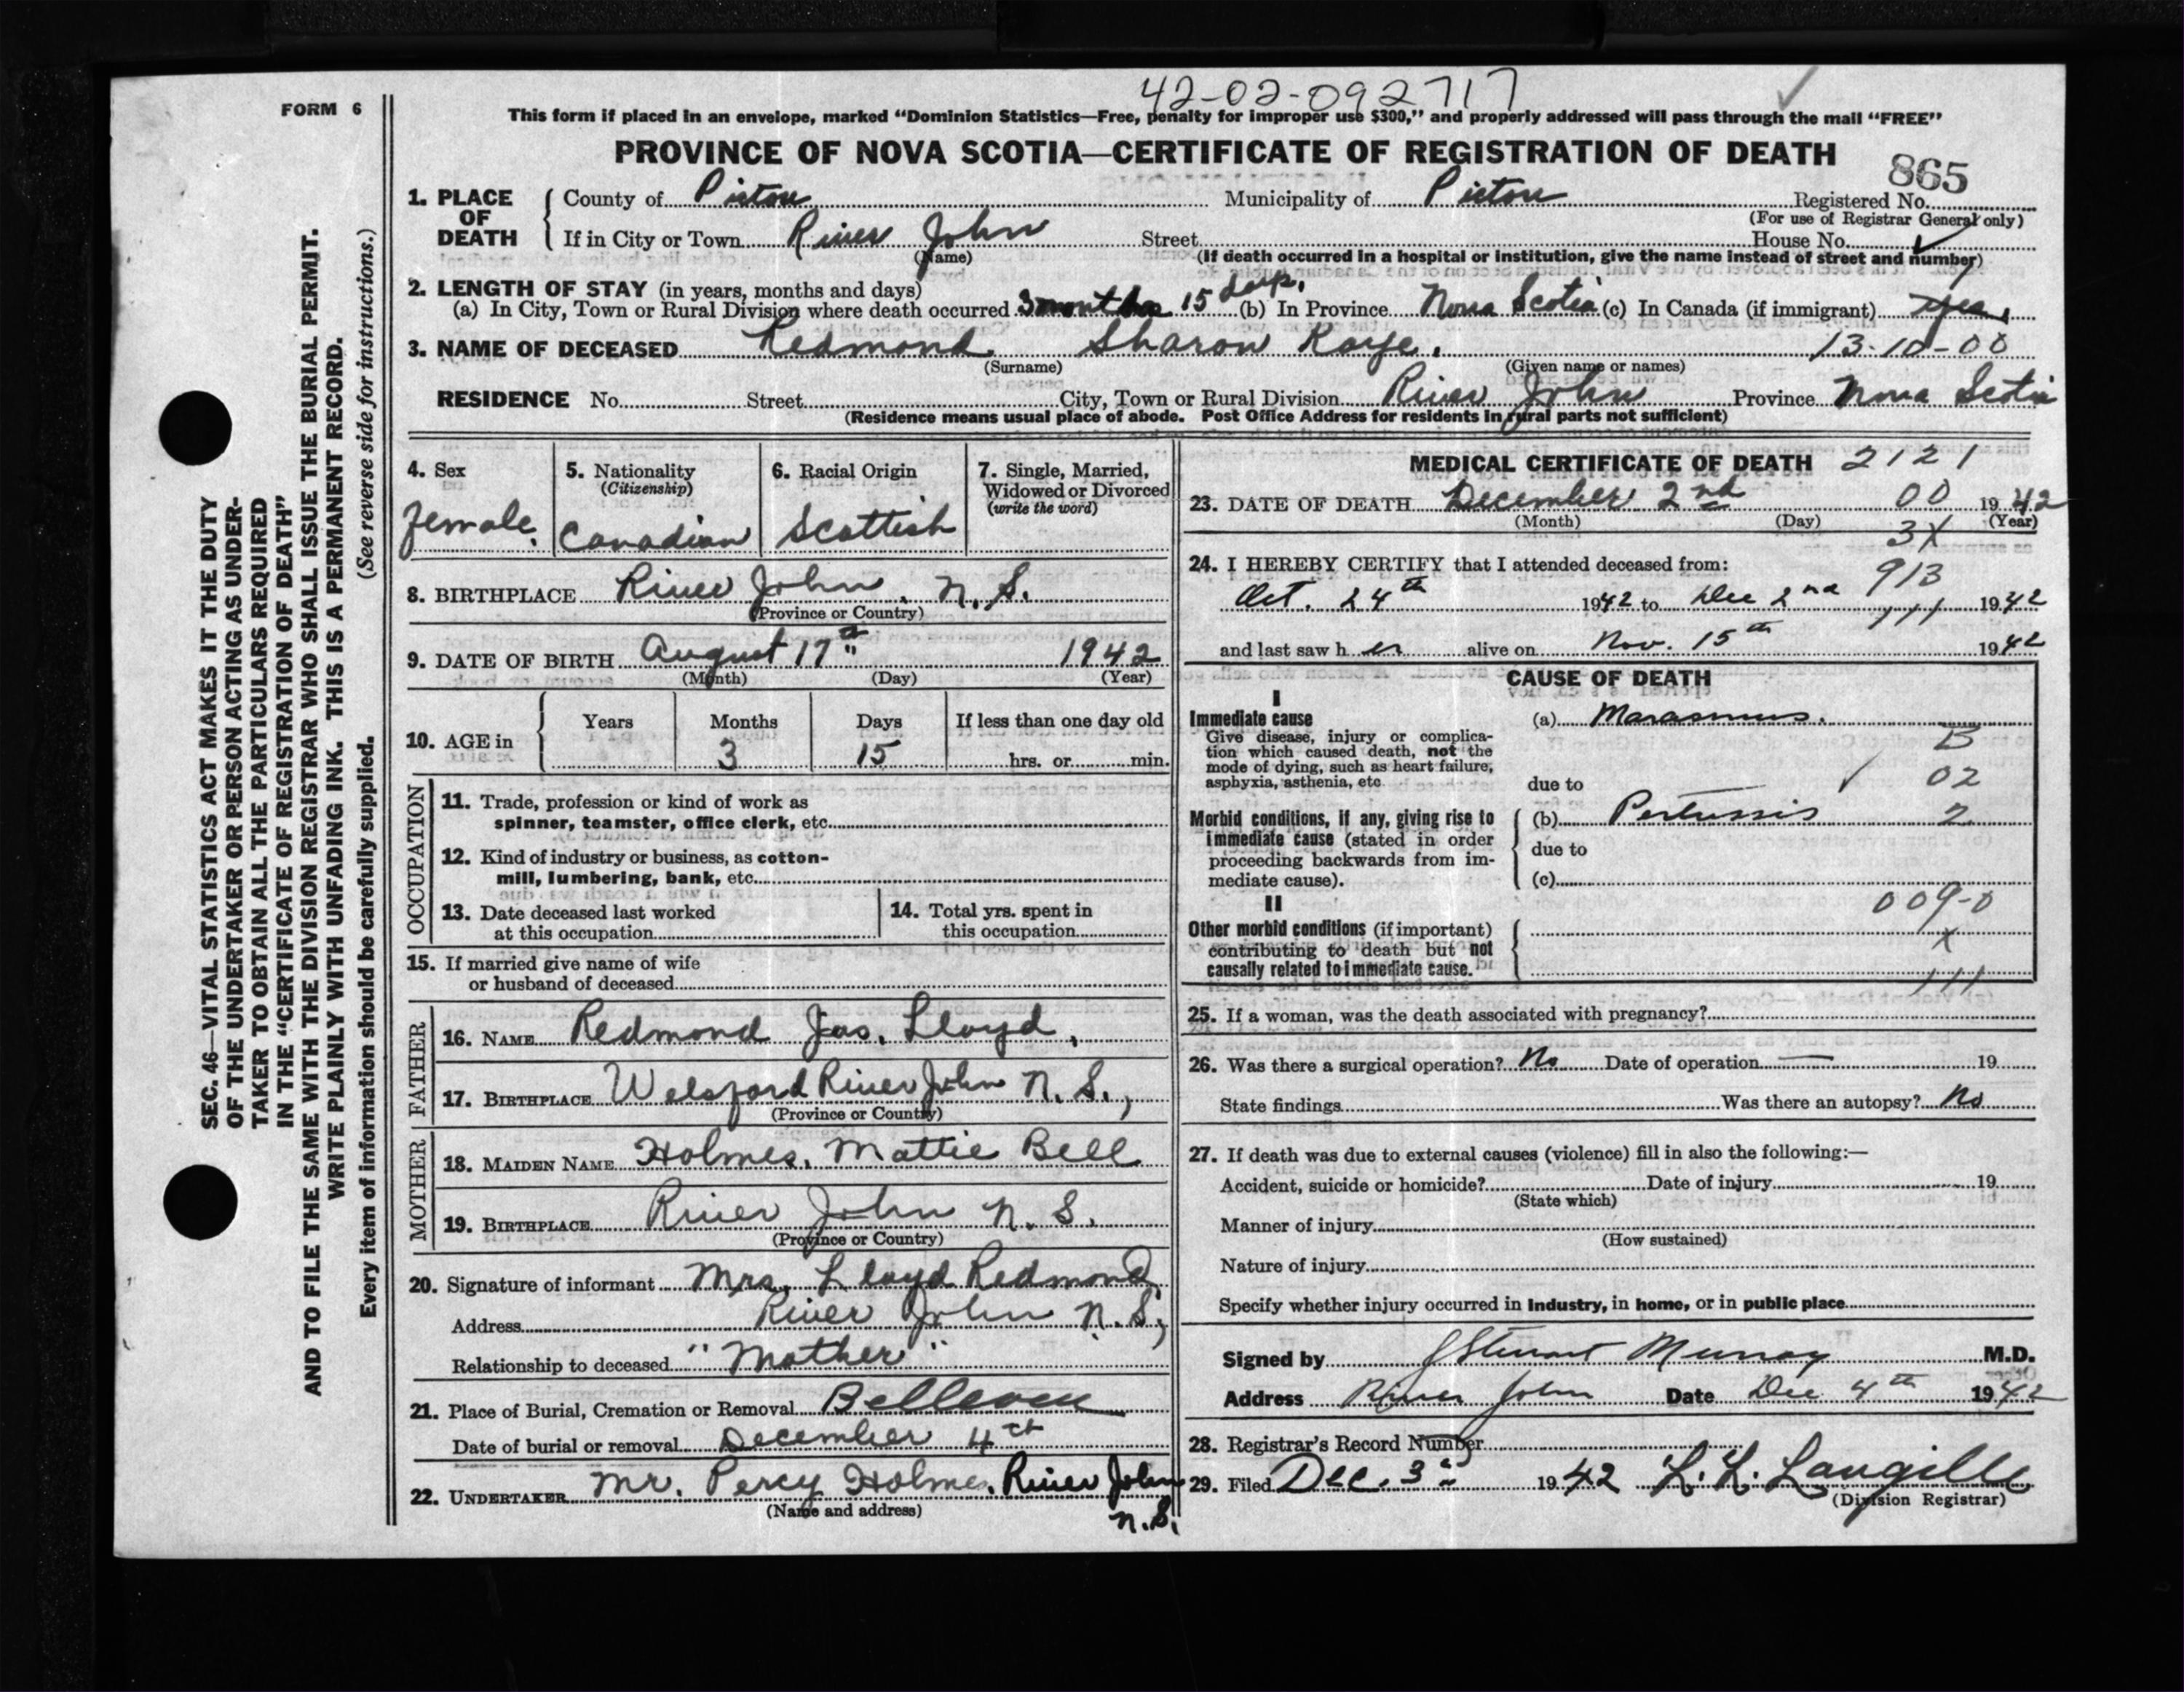 42-02-092717
FORM 6
This form if placed in an envelope, marked "Dominion Statistics—Free, penalty for improper use $300," and properly addressed will pass through the mail "FREE"
PROVINCE OF NOVA SCOTIA—CERTIFICATE OF REGISTRATION OF DEATH
865
1. PLACE OF DEATH
County of Pictou Municipality of Pictou Registered No.
(For use of Registrar General only)
If in City or Town River John Street House No.
(Name)
(If death occurred in a hospital or institution, give the name instead of street and number)
2. LENGTH OF STAY (in years, months and days)
(a) In City, Town or Rural Division where death occurred 3 months 15 days. (b) In Province Nova Scotia (c) In Canada (if immigrant) yes.
3. NAME OF DECEASED Redmond Sharon Kaye. 13-10-00
(Surname) (Given name or names)
RESIDENCE No. Street City, Town or Rural Division River John Province Nova Scotia
(Residence means usual place of abode. Post Office Address for residents in rural parts not sufficient)
4. Sex
female.
5. Nationality
(Citizenship)
Canadian
6. Racial Origin
Scottish
7. Single, Married,
Widowed or Divorced
(write the word)
8. BIRTHPLACE River John, N.S.
(Province or Country)
9. DATE OF BIRTH August 17th 1942
(Month) (Day) (Year)
10. AGE in
Years Months Days If less than one day old
3 15 hrs. or min.
OCCUPATION
11. Trade, profession or kind of work as
spinner, teamster, office clerk, etc.
12. Kind of industry or business, as cotton-
mill, lumbering, bank, etc.
13. Date deceased last worked
at this occupation
14. Total yrs. spent in
this occupation
15. If married give name of wife
or husband of deceased
FATHER
16. NAME Redmond Jas. Lloyd,
17. BIRTHPLACE Welsford River John N.S.,
(Province or Country)
MOTHER
18. MAIDEN NAME Holmes, Mattie Bell
19. BIRTHPLACE River John N.S.
(Province or Country)
20. Signature of informant Mrs. Lloyd Redmond
Address River John N.S,
Relationship to deceased "Mother"
21. Place of Burial, Cremation or Removal
Date of burial or removal December 4th
22. UNDERTAKER Mr. Percy Holmes. River John
(Name and address) N.S.
MEDICAL CERTIFICATE OF DEATH 2121
23. DATE OF DEATH December 2nd 00 1942
(Month) (Day) (Year)
3X
24. I HEREBY CERTIFY that I attended deceased from:
913
Oct. 24th 1942 to Dec 2nd 1942
111
and last saw her alive on Nov. 15th 1942
CAUSE OF DEATH
I
Immediate cause
Give disease, injury or complica-
tion which caused death, not the
mode of dying, such as heart failure,
asphyxia, asthenia, etc
(a) Marasmus.
B
due to 02
Morbid conditions, if any, giving rise to
immediate cause (stated in order
proceeding backwards from im-
mediate cause).
(b) Pertussis 2
due to
(c)
009-0
II
Other morbid conditions (if important)
contributing to death but not
causally related to immediate cause.
X
111
25. If a woman, was the death associated with pregnancy?
26. Was there a surgical operation? No Date of operation — 19
State findings Was there an autopsy? No
27. If death was due to external causes (violence) fill in also the following:—
Accident, suicide or homicide? Date of injury 19
(State which)
Manner of injury
(How sustained)
Nature of injury
Specify whether injury occurred in industry, in home, or in public place
Signed by J Stewart Murray M.D.
Address River John Date Dec 4th 1942
28. Registrar's Record Number
29. Filed Dec. 3rd 1942 L. L. Langille
(Division Registrar)
SEC. 46—VITAL STATISTICS ACT MAKES IT THE DUTY
OF THE UNDERTAKER OR PERSON ACTING AS UNDER-
TAKER TO OBTAIN ALL THE PARTICULARS REQUIRED
IN THE "CERTIFICATE OF REGISTRATION OF DEATH"
AND TO FILE THE SAME WITH THE DIVISION REGISTRAR WHO SHALL ISSUE THE BURIAL PERMIT.
WRITE PLAINLY WITH UNFADING INK. THIS IS A PERMANENT RECORD.
(See reverse side for instructions.)
Every item of information should be carefully supplied.